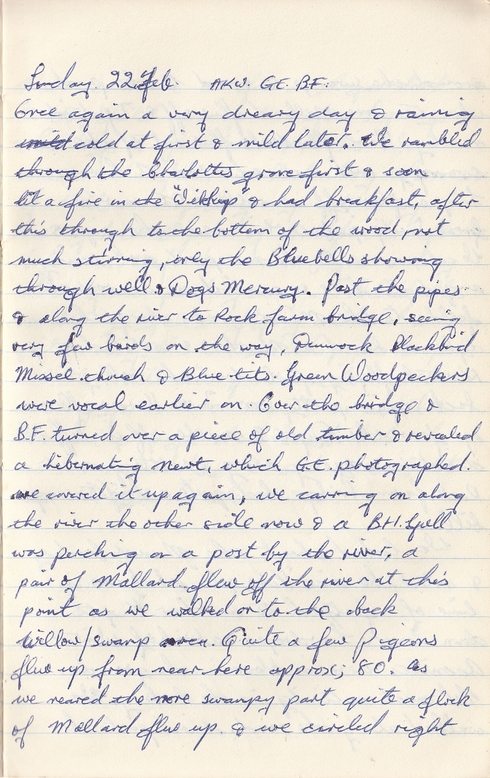 Sunday. 22 Feb. AKW. G.E. B.F.
Once again a very dreary day & raining
mild cold at first & mild later. We rambled
through the Charlotte's grove first & soon
lit a fire in the "Wikkup" & had breakfast, after
this through to the bottom of the wood, not
much stirring, only the Bluebells showing
through well & Dogs Mercury. Past the pipes
& along the river to Rock farm bridge, seeing
very few birds on the way, Dunnock Blackbird
Missel though & Blue-tits. Green Woodpeckers
were vocal earlier on. Over the bridge &
B.F. turned over a piece of old timber & revealed
a hibernating newt, which G.E. photographed.
we covered it up again, we carring on along
the river the other side now & a B.H. Gull
was perching on a post by the river, a
pair of Mallard flew off the river at this
point as we walked on to the
Willow/swamp area. Quite a few Pigeons
flew up from near here approx; 80. As
we neared the more swampy part quite a flock
of Mallard flew up. & we circled right